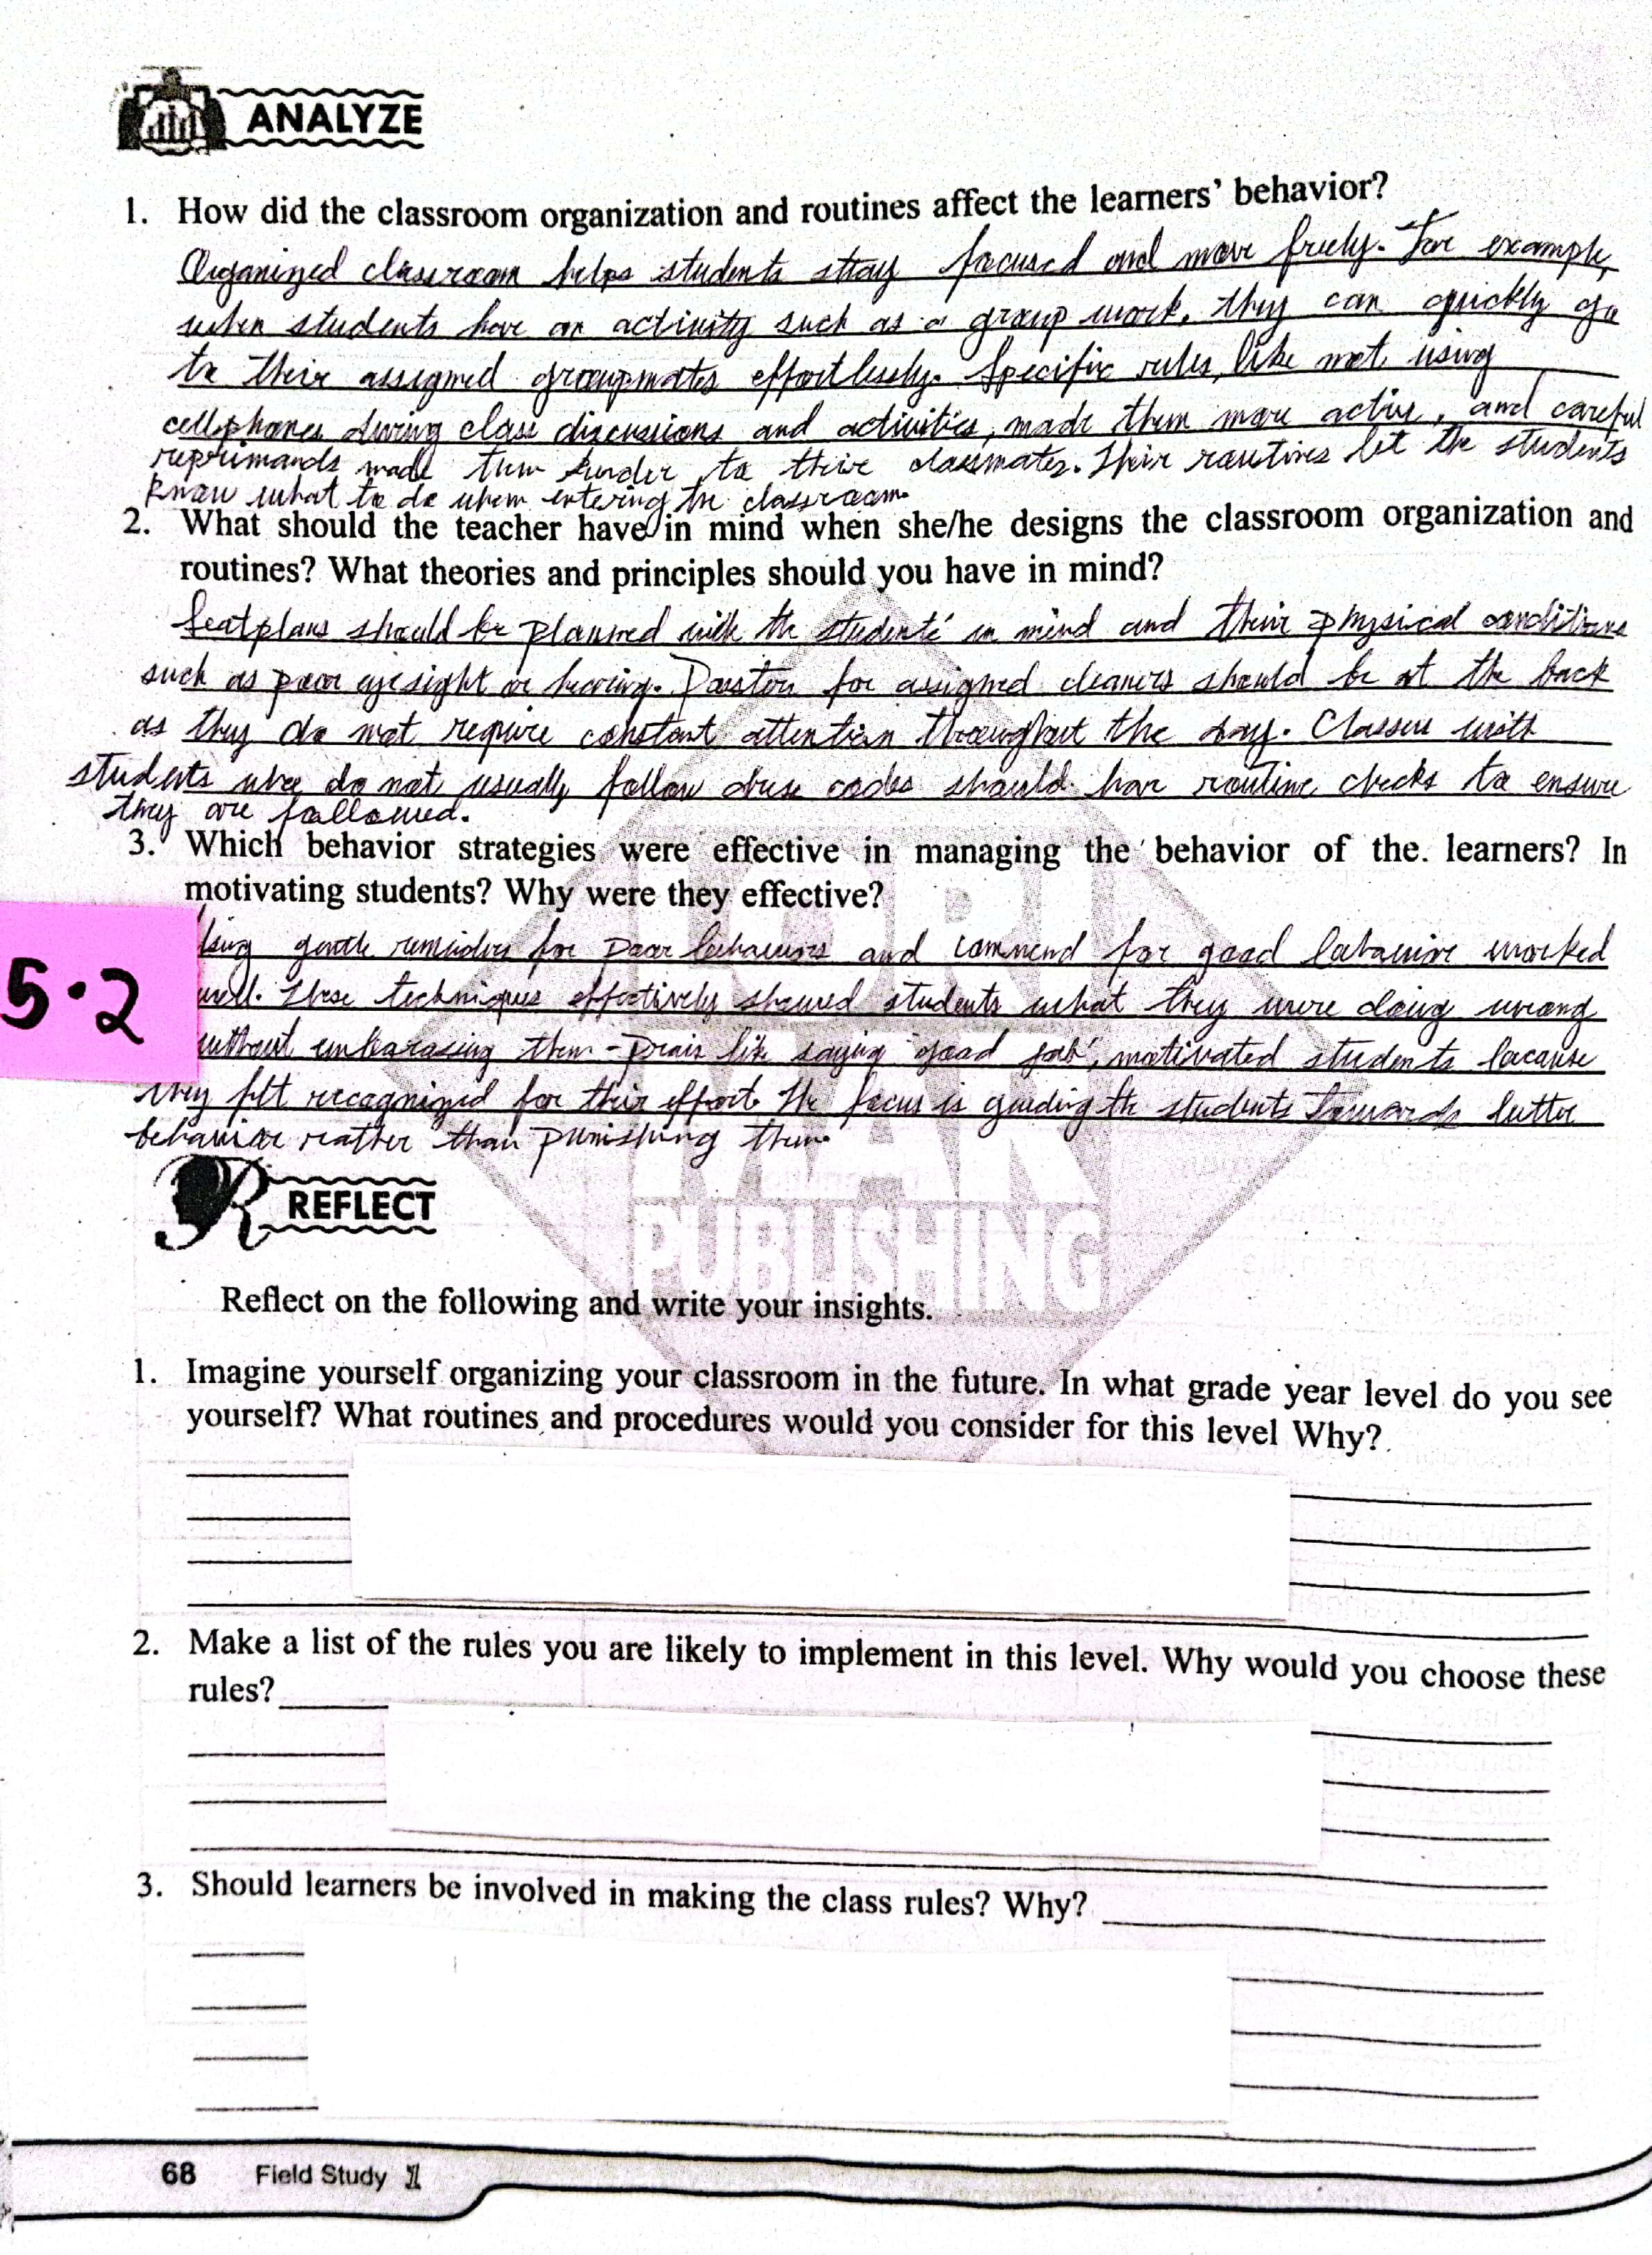 ANALYZE
1. How did the classroom organization and routines affect the learners' behavior?
Organized classroom helps students stay focused and move freely. For example,
when students have an activity such as a group work, they can quickly go
to their assigned groupmates effortlessly. Specific rules, like not using
cellphones during class discussions and activities, made them more active, and careful
reprimands made them kinder to their classmates. Their routines let the students
know what to do when entering the classroom.
2. What should the teacher have in mind when she/he designs the classroom organization and
routines? What theories and principles should you have in mind?
Seatplans should be planned with the students' in mind and their physical conditions
such as poor eyesight or hearing. for assigned cleaners should be at the back
as they do not require constant attention throughout the day. Classes with
students who do not usually follow dress codes should have routine checks to ensure
they are followed.
3. Which behavior strategies were effective in managing the behavior of the. learners? In
motivating students? Why were they effective?
gentle reminders for poor behaviors and commend for good behavior worked
well. These techniques effectively showed students what they were doing wrong
without embarassing them - like saying "good job", motivated students because
they felt recognized for their effort. The focus is guiding the students towards better
behavior rather than punishing them.
5.2
REFLECT
PUBLISHING
Reflect on the following and write your insights.
1. Imagine yourself organizing your classroom in the future. In what grade year level do you see
yourself? What routines and procedures would you consider for this level Why?
2. Make a list of the rules you are likely to implement in this level. Why would you choose these
rules?
3. Should learners be involved in making the class rules? Why?
68 Field Study 1